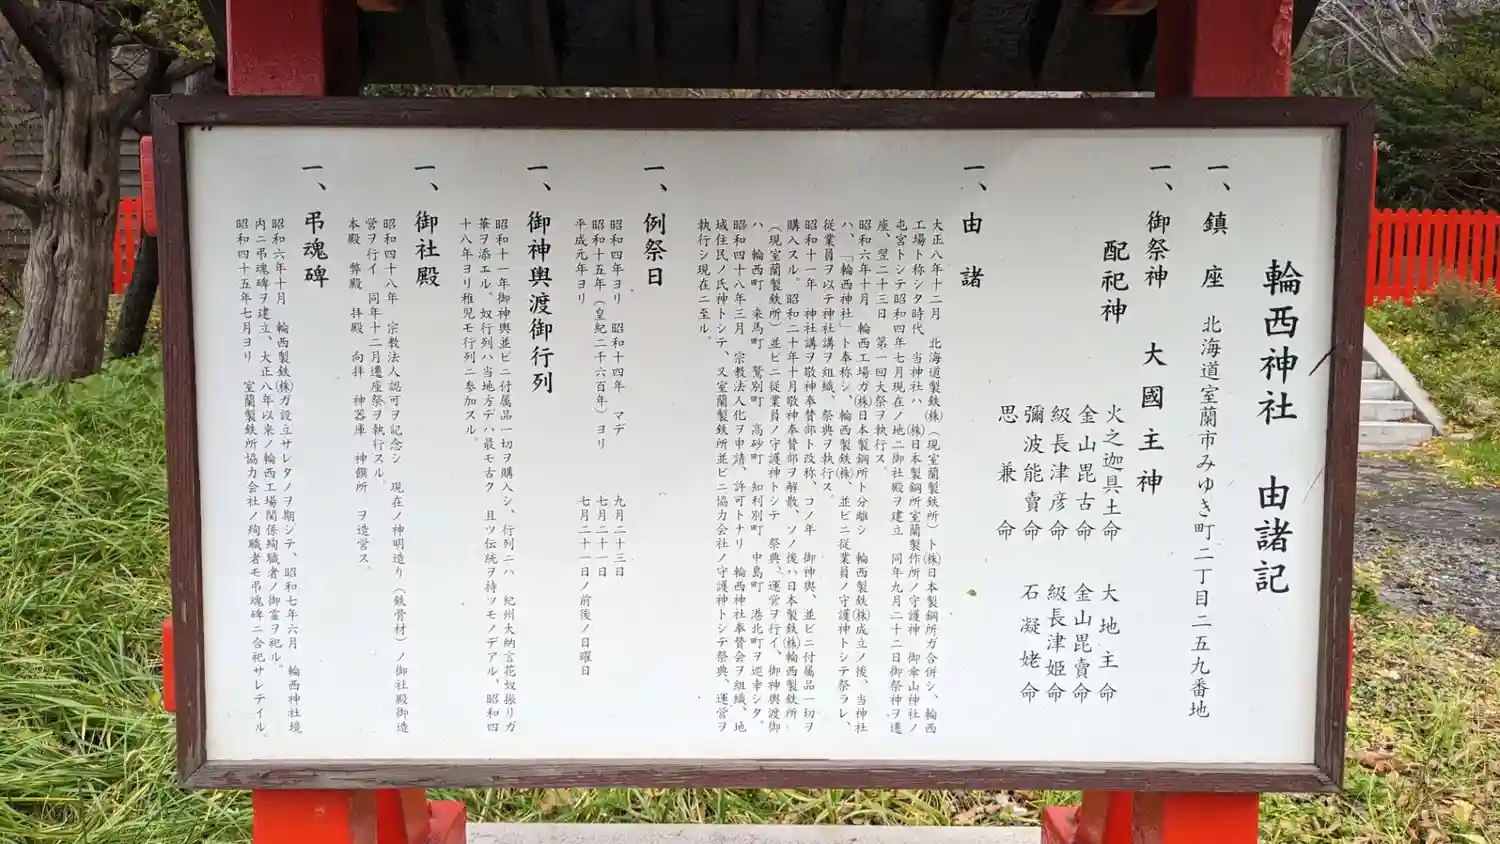 輪西神社　由諸記
一、鎮　座　北海道室蘭市みゆき町二丁目二五九番地
一、御祭神　大國主神
配祀神
火之迦具土命　大地主命
金山毘古命　金山毘賣命
級長津彦命　級長津姫命
彌波能賣命　石凝姥命
思兼命
一、由　諸
大正八年十二月　北海道製鉄㈱（現室蘭製鉄所）ト㈱日本製鋼所ガ合併シ、輪西
工場ト称シタ時代　当神社ハ　㈱日本製鋼所室蘭製作所ノ守護神　御傘山神社ノ
屯宮トシテ昭和四年七月現在ノ地ニ御社殿ヲ建立　同年九月二十二日御祭神ヲ遷
座、翌二十三日　第一回大祭ヲ執行ス。
昭和六年十月　輪西工場ガ㈱日本製鋼所ト分離シ　輪西製鉄㈱成立ノ後、当神社
ハ、「輪西神社」ト奉称シ、輪西製鉄㈱、並ビニ従業員ノ守護神トシテ祭ラレ、
従業員ヲ以テ神社講ヲ組織、祭典ヲ執行ス。
昭和十一年　神社講ヲ敬神奉賛部ト改称、コノ年　御神輿、並ビニ付属品一切ヲ
購入スル。昭和二十年十月敬神奉賛部ヲ解散、ソノ後ハ日本製鉄㈱輪西製鉄所
（現室蘭製鉄所）並ビニ従業員ノ守護神トシテ　祭典、運営ヲ行イ、御神輿渡御
ハ　輪西町　東馬町　鷲別町　高砂町　知利別町　中島町　港北町ヲ巡幸シタ。
昭和四十八年三月　宗教法人化ヲ申請、許可トナリ　輪西神社奉賛会ヲ組織、地
域住民ノ氏神トシテ、又室蘭製鉄所並ビニ協力会社ノ守護神トシテ祭典、運営ヲ
執行シ現在ニ至ル。
一、例祭日
昭和四年ヨリ　昭和十四年　マデ　九月二十三日
昭和十五年（皇紀二千六百年）ヨリ　七月二十一日
平成元年ヨリ　七月二十一日ノ前後ノ日曜日
一、御神輿渡御行列
昭和十一年御神輿並ビニ付属品一切ヲ購入シ、行列ニハ　紀州大納言花奴振リガ
華ヲ添エル。奴行列ハ当地方デハ最モ古ク　且ツ伝統ヲ持ツモノデアル、昭和四
十八年ヨリ稚児モ行列ニ参加スル。
一、御社殿
昭和四十八年　宗教法人認可ヲ記念シ　現在ノ神明造リ（鉄骨材）ノ御社殿御造
営ヲ行イ　同年十二月遷座祭ヲ執行スル。
本殿　弊殿　拝殿　向拝　神器庫　神饌所　ヲ造営ス。
一、弔魂碑
昭和六年十月　輪西製鉄㈱ガ設立サレタノヲ期シテ、昭和七年六月　輪西神社境
内ニ弔魂碑ヲ建立、大正八年以来ノ輪西工場関係殉職者ノ御霊ヲ祀ル。
昭和四十五年七月ヨリ　室蘭製鉄所協力会社ノ殉職者モ弔魂碑ニ合祀サレテイル。